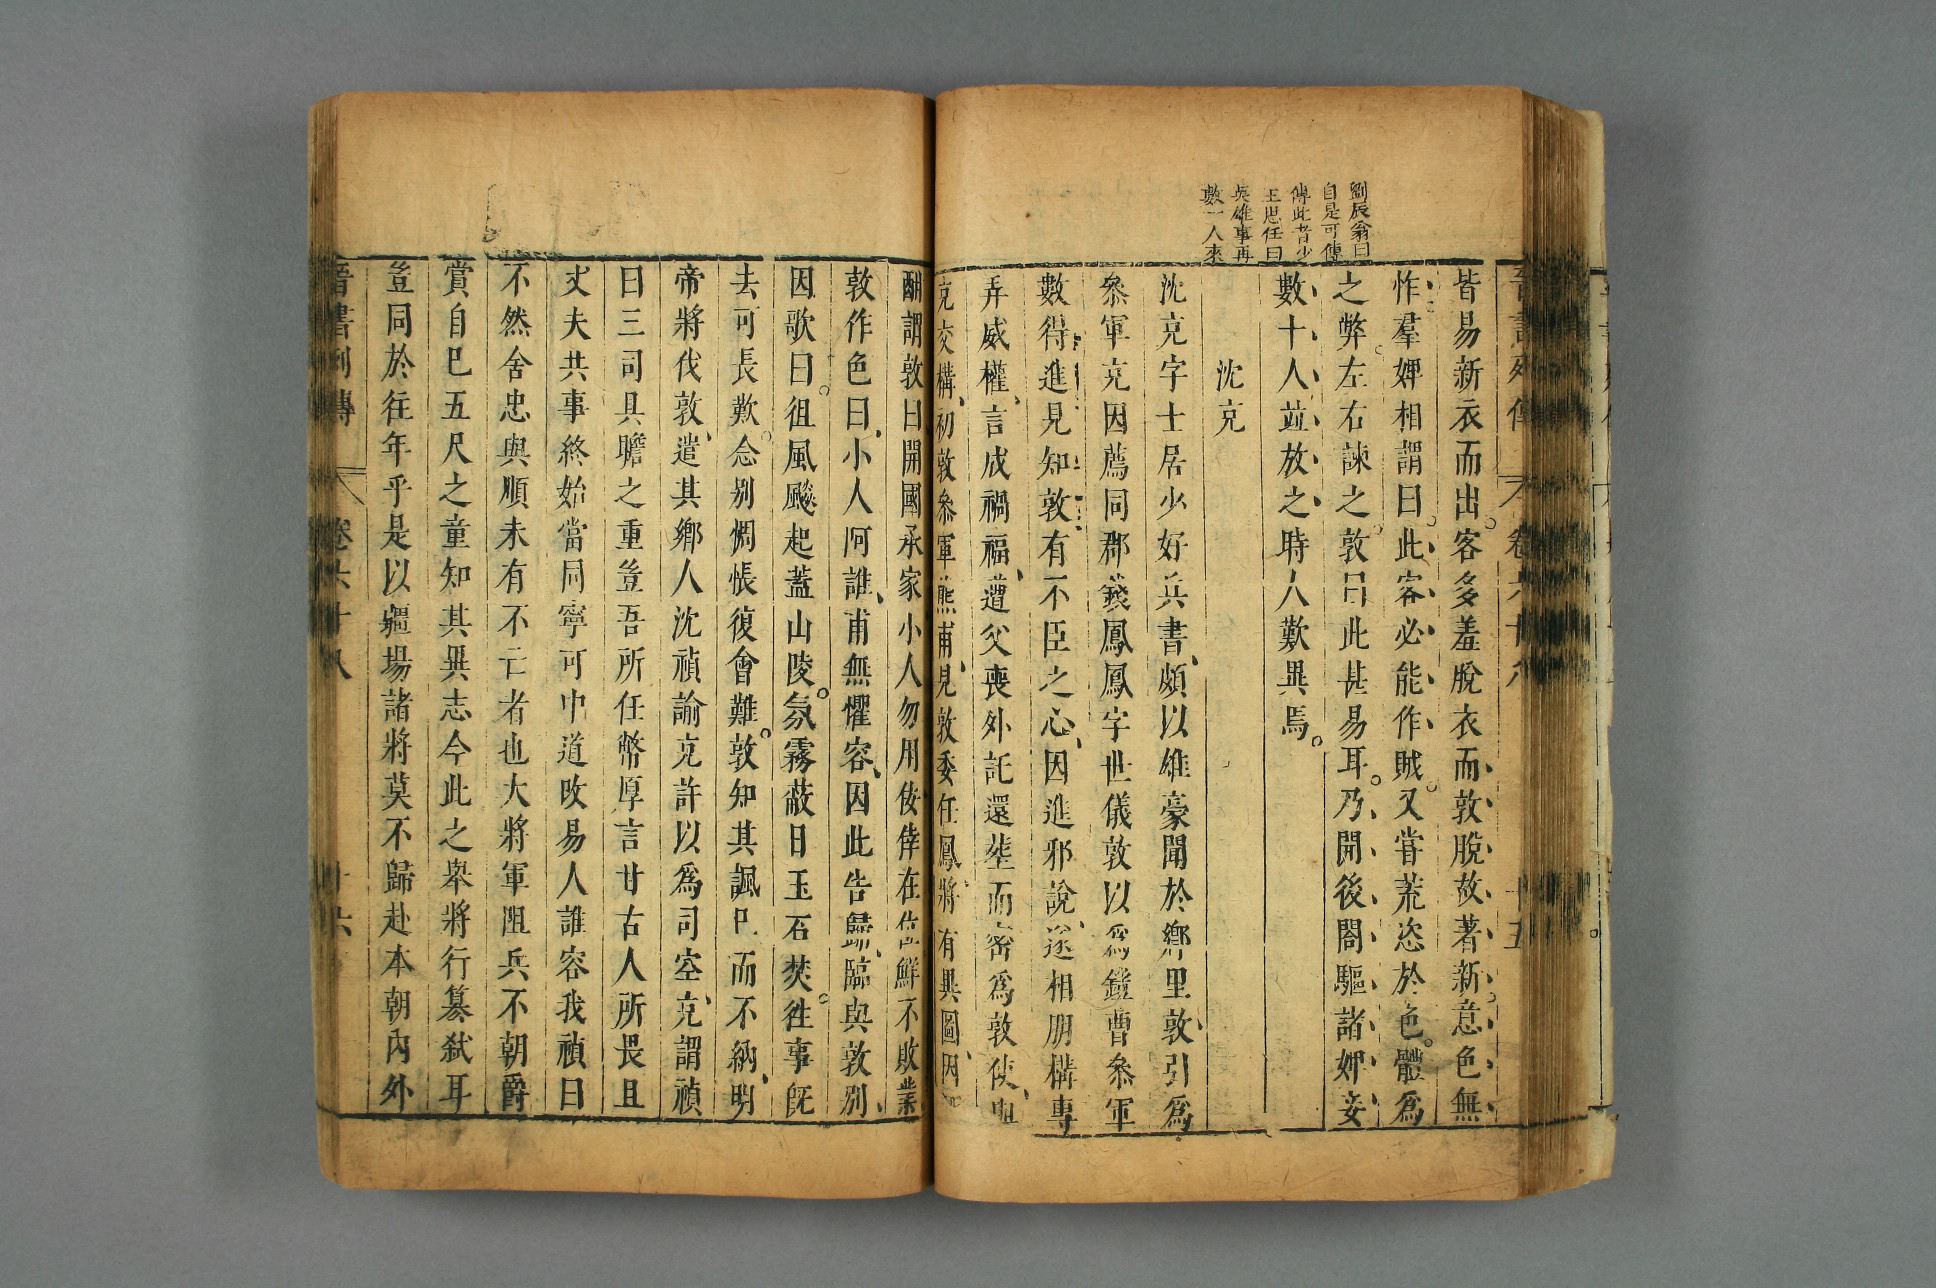 劉辰翁曰
自是可傳
傳此者少
王思任曰
英雄事再
數一人來
晉書列傳 卷六十八 十五
皆易新衣而出。客多羞脫衣。而敦脫故著新。意色無
怍。羣婢相謂曰。此客必能作賊。又甞荒恣於色。體爲
之弊。左右諫之。敦曰此甚易耳。乃開後閤驅諸婢妾
數十人並放之。時人歎異焉。
沈充
沈充字士居少好兵書、頗以雄豪聞於鄉里、敦引爲
叅軍充因薦同郡錢鳳鳳字世儀敦以爲鎧曹叅軍
數得進見知敦有不臣之心、因進邪說、遂相朋構專
弄威權、言成禍福、遭父喪外託還葬而密爲敦使、與
充交構、初敦叅軍熊甫、見敦委任鳳、將有異圖、因
酣謂敦曰開國承家小人勿用佞倖在位鮮不敗業
敦作色曰、小人阿誰、甫無懼容、因此告歸、臨與敦別、
因歌曰。徂風飈起蓋山陵。氛霧蔽日玉石焚。徃事旣
去可長歎。念別惆悵復會難。敦知其諷巳而不納、明
帝將伐敦、遣其鄉人沈禎諭充許以爲司空、充謂禎
曰三司具瞻之重豈吾所任幣厚言甘古人所畏且
丈夫共事終始當同寧可中道改易人誰容我禎曰
不然舍忠與順未有不亡者也大將軍阻兵不朝爵
賞自巳五尺之童知其異志今此之舉將行篡弑耳
豈同於往年乎是以疆場諸將莫不歸赴本朝內外
晉書列傳 卷六十八 十六